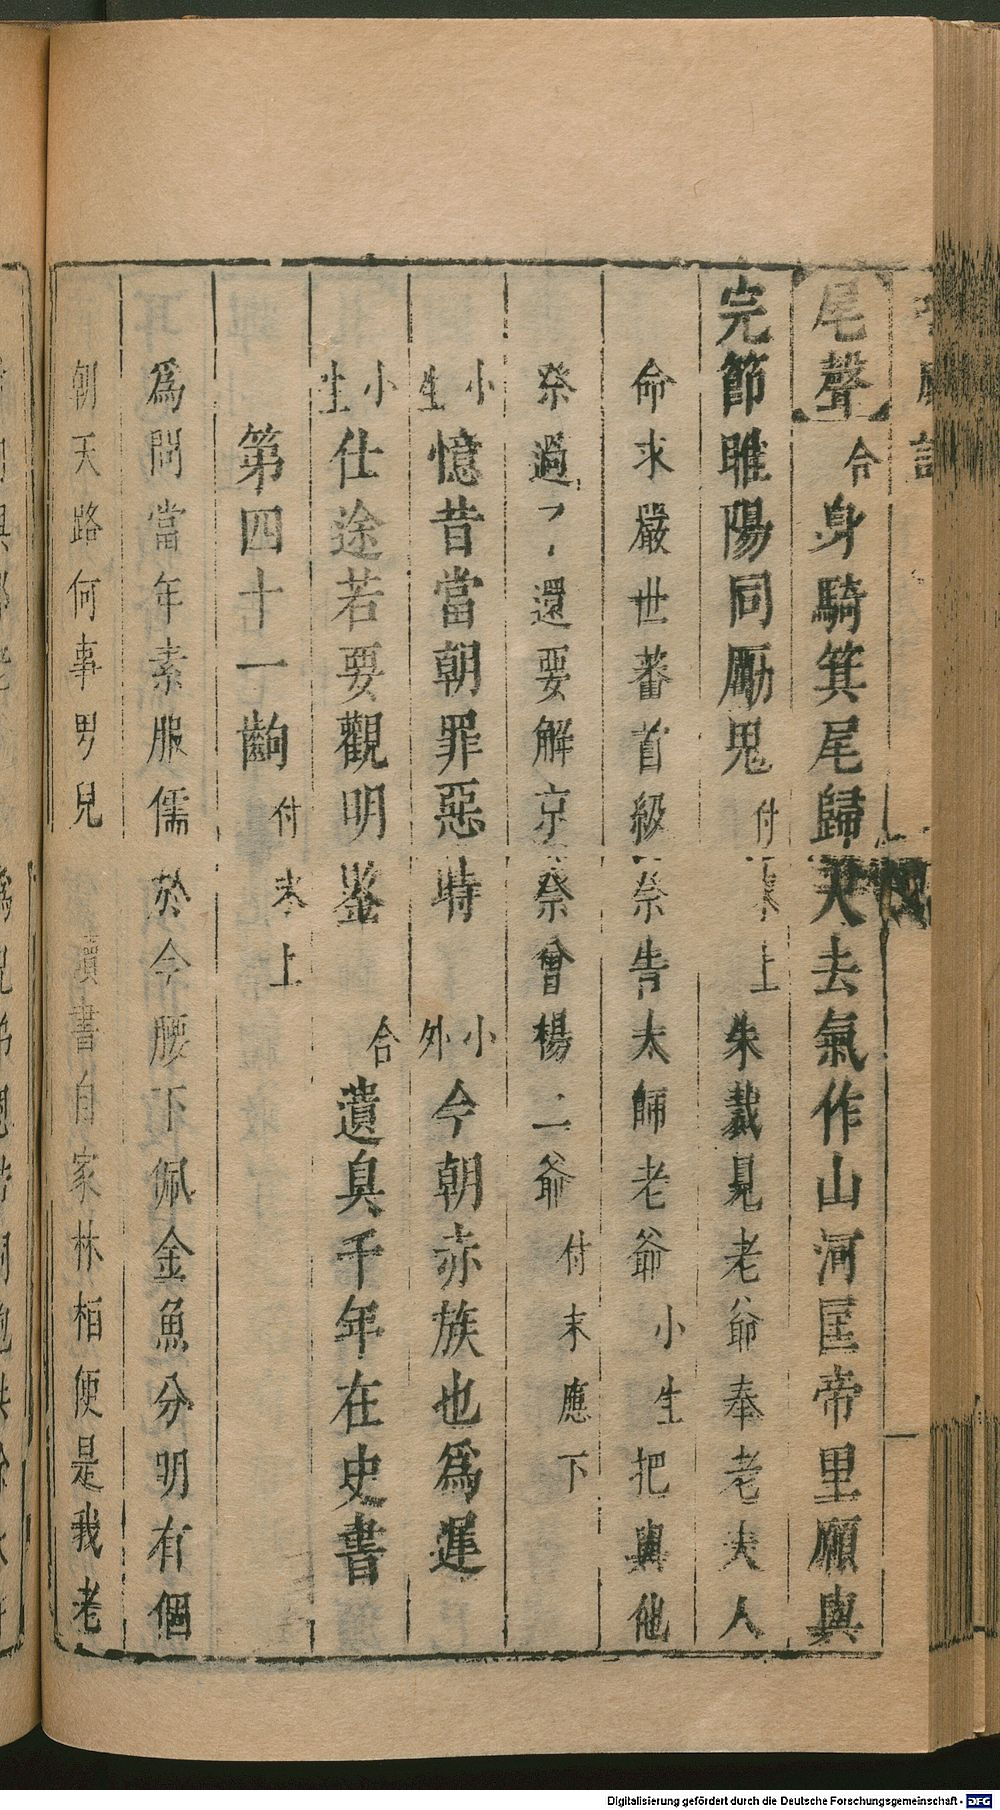 尾聲 合 身騎箕尾歸天去氣作山河匡帝里願與
完節睢陽同厲鬼 付末上 朱戴見老爺奉老夫人
命求嚴世蕃首級祭告太師老爺 小生 把與他
祭過了還要解京祭曾楊二爺 付末應下
小生 憶昔當朝罪惡時 小外 今朝赤族也爲遲
小生 仕途若要觀明鑒 合 遺臭千年在史書
第四十一齣 付末上
爲問當年素服儒於今腰下佩金魚分明有個
朝天路何事男兒 讀書自家林栢便是我老
Digitalisierung gefördert durch die Deutsche Forschungsgemeinschaft - DFG